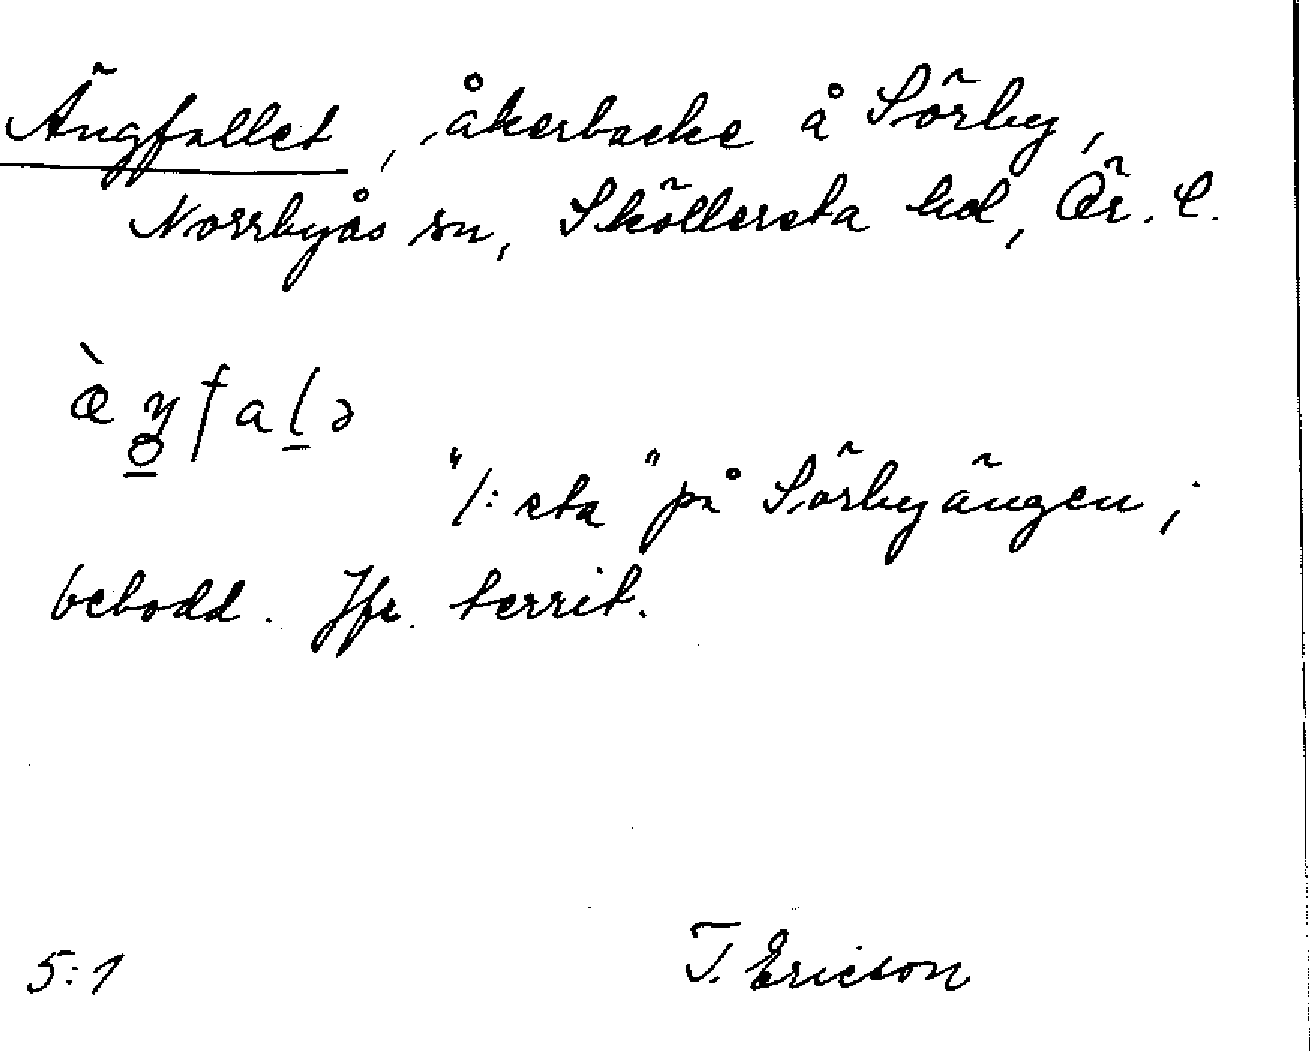 Ängfallet, åkerbacke å Sörby,
Norrbyås sn, Sköllersta hd, Ör. l.
"/:sta" på Sörbyängen;
bebodd. Jfr. territ.
5:1 T. Ericson